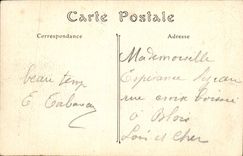 Carte Postale
Correspondance
Adresse
Mademoiselle
Espérance
beau temps
rue croix boissée
E
à Blois
Loir et Cher